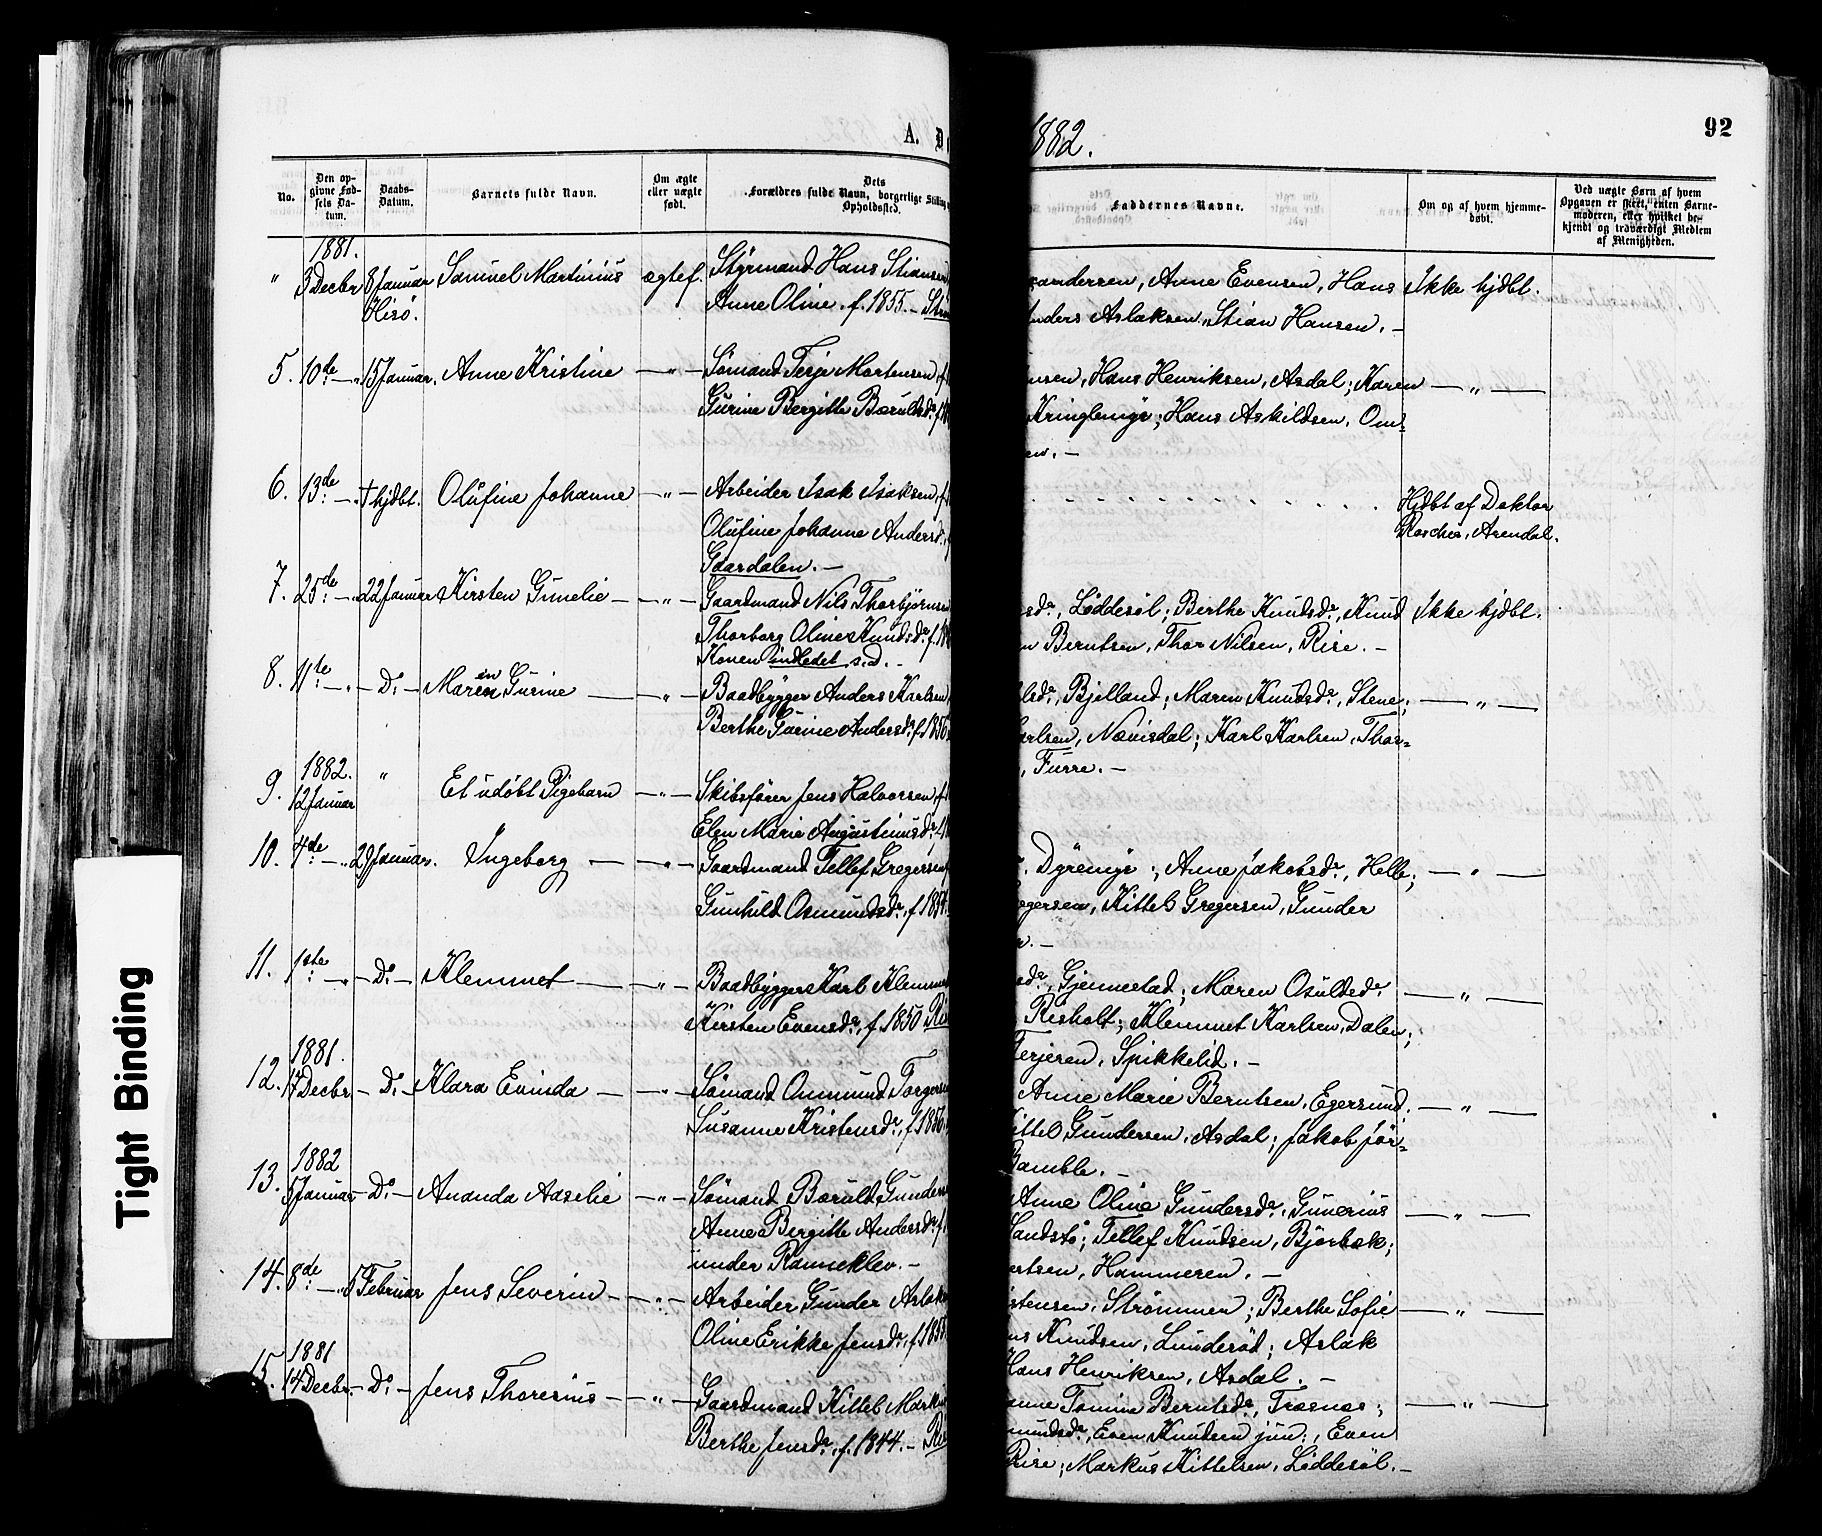 92
A. D
1882.
No.
Den op-
givne Fød-
sels Da-
tum.
Daabs-
Datum.
Barnets fulde Navn.
Om ægte
eller uægte
født.
Dets
Forældres fulde Navn, borgerlige Stilling
Opholdssted.
Faddernes Navne.
Om og af hvem hjemme-
døbt.
Ved uægte Børn af hvem
Opgaven er skeet, enten Barne-
moderen, eller hvilket be-
kjendt og troværdigt Medlem
af Menigheden.
1881.
" 3 Decbr 8 Januar Samuel Martinius ægtef. Styrmand Hans Stiansen
Hisö. Anne Oline f. 1855. —
andersen, Anne Evensen, Hans Ikke hjdbt.
Anders Aslaksen, Stian Hansen. —
5. 10de — „ 15 Januar. Anne Kristine — „ — Sömand Terje Mortensen, f.
Gurine Bergitte Bæruldsdr,
nsen, Hans Henriksen, Asdal; Karen — „ —
Kringlemyr; Hans Askildsen, Om-
en. —
6. 13de — „ † hjdbt. Olufine Johanne — „ — Arbeider Isak Isaksen, f.
Olufine Johanne Andersdr.,
Gaardalen. —
Hjdbt af Doktor
Arendal.
7. 25de — „ 22 Januar Kirsten Gunelie — „ — Gaardmand Nils Thorbjørnsen
Thorborg Oline Knudsdr. f.
Konen indledet s.d. —
sdr, Löddesöl; Berthe Knudsdr, Knud Ikke hjdbt.
n Berntsen, Thor Nilsen, Rise. —
8. 11te — „ — Do — Maren Gurine — „ — Baadbygger Anders Karlsen
Berthe Gurine Andersdr. f. 1856
lsdr, Bjelland; Maren Knudsdr, Stene; — „ —
arlsen, Nævisdal; Karl Karlsen, Thor-
, Furre. —
1882.
9. 12 Januar " Et udøbt Pigebarn — „ — Skibsfører Jens Halvorsen, f.
Elen Marie Augustinusdr.
10. 4de — „ 29 Januar. Ingeborg — „ — Gaardmand Tellef Gregersen
Gunhild Osmundsdr, f. 1854.
. Dyremyr; Anne Jakobsdr, Helle; — „ —
egersen, Kittel Gregersen, Gunder
n. —
11. 1ste — „ — Do — Klemmet — „ — Baadbygger Karl Klemme
Kirsten Evensdr, f. 1850
sdr, Gjennestad; Maren Osuldsdr. — „ —
Risholt; Klemmet Karlsen, Dalen;
Terjesen, Spikkelid. —
1881.
12. 17 Decbr — Do — Klara Evinda — „ — Sömand Osmund Torgers
Susanne Kristensdr, f. 1856
Anne Marie Berntsen, Egersund. — „ —
Kittel Gundersen, Asdal; Jakob Jör-
Bamble. —
1882
13. 5 Januar — Do — Ananda Aaselie — „ — Sömand Bæruld Gunders
Anne Bergitte Andersdr f.
under Ranneklev. —
Anne Oline Gundersdr, Gunerius — „ —
Sandstö; Tellef Knudsen, Bjorbæk;
ertsen, Hammeren. —
14. 8de — „ 5 Februar Jens Severin — „ — Arbeider Gunder Aslaks
Oline Erikke Jensdr, f. 1853
istensen, Strömmen; Berthe Sofie — „ —
ns Knudsen, Lunderöd; Aslak
Hans Henriksen, Asdal. —
1881
15. 14 Decbr. — Do — Jens Thorenius — „ — Gaardmand Kittel Marku
Berthe Jensdr, f. 1844. —
anne Tomine Berntsdr, Træsnes; — „ —
mundsdr, Even Knudsen jun., Even
Rise; Markus Kittelsen, Löddesöl. —
Tight Binding